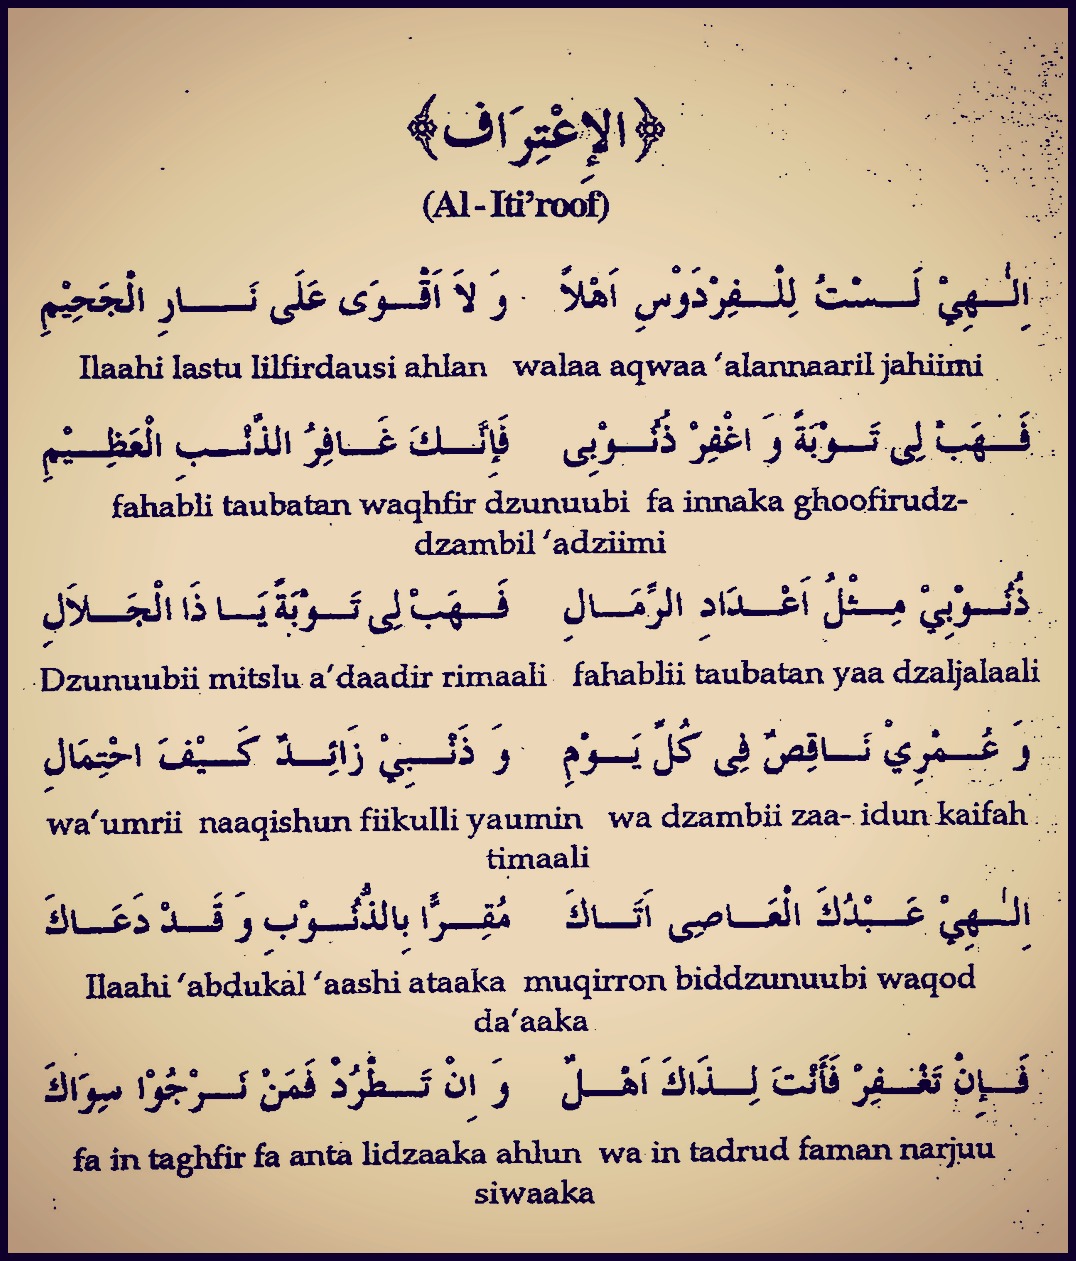 ﴿الإِعْتِرَاف﴾
(Al - Iti’roof)
اِلٰهِيْ لَسْتُ لِلْفِرْدَوْسِ اَهْلاً وَ لاَ اَقْوَى عَلَى نَارِ الْجَحِيْمِ
Ilaahi lastu lilfirdausi ahlan walaa aqwaa ‘alannaaril jahiimi
فَهَبْ لِى تَوْبَةً وَ اغْفِرْ ذُنُوْبِى فَإِنَّكَ غَافِرُ الذَّنْبِ الْعَظِيْمِ
fahabli taubatan waqhfir dzunuubi fa innaka ghoofirudz-
dzambil ‘adziimi
ذُنُوْبِيْ مِثْلُ اَعْدَادِ الرِّمَالِ فَهَبْ لِى تَوْبَةً يَا ذَا الْجَلاَلِ
Dzunuubii mitslu a‘daadir rimaali fahablii taubatan yaa dzaljalaali
وَ عُمْرِيْ نَاقِصٌ فِى كُلِّ يَوْمٍ وَ ذَنْبِيْ زَائِدٌ كَيْفَ احْتِمَالِ
wa‘umrii naaqishun fiikulli yaumin wa dzambii zaa- idun kaifah
timaali
اِلٰهِيْ عَبْدُكَ الْعَاصِى اَتَاكَ مُقِرًّا بِالذُّنُوْبِ وَ قَدْ دَعَاكَ
Ilaahi ‘abdukal ‘aashi ataaka muqirron biddzunuubi waqod
da‘aaka
فَإِنْ تَغْفِرْ فَأَنْتَ لِذَاكَ اَهْلٌ وَ اِنْ تَطْرُدْ فَمَنْ نَرْجُوْا سِوَاكَ
fa in taghfir fa anta lidzaaka ahlun wa in tadrud faman narjuu
siwaaka